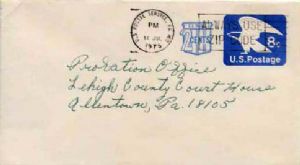 PM
1975
ALWAYS USE
ZIP CODE
8c
U.S. Postage
Probation Office
Lehigh County Court House
Allentown, Pa. 18105